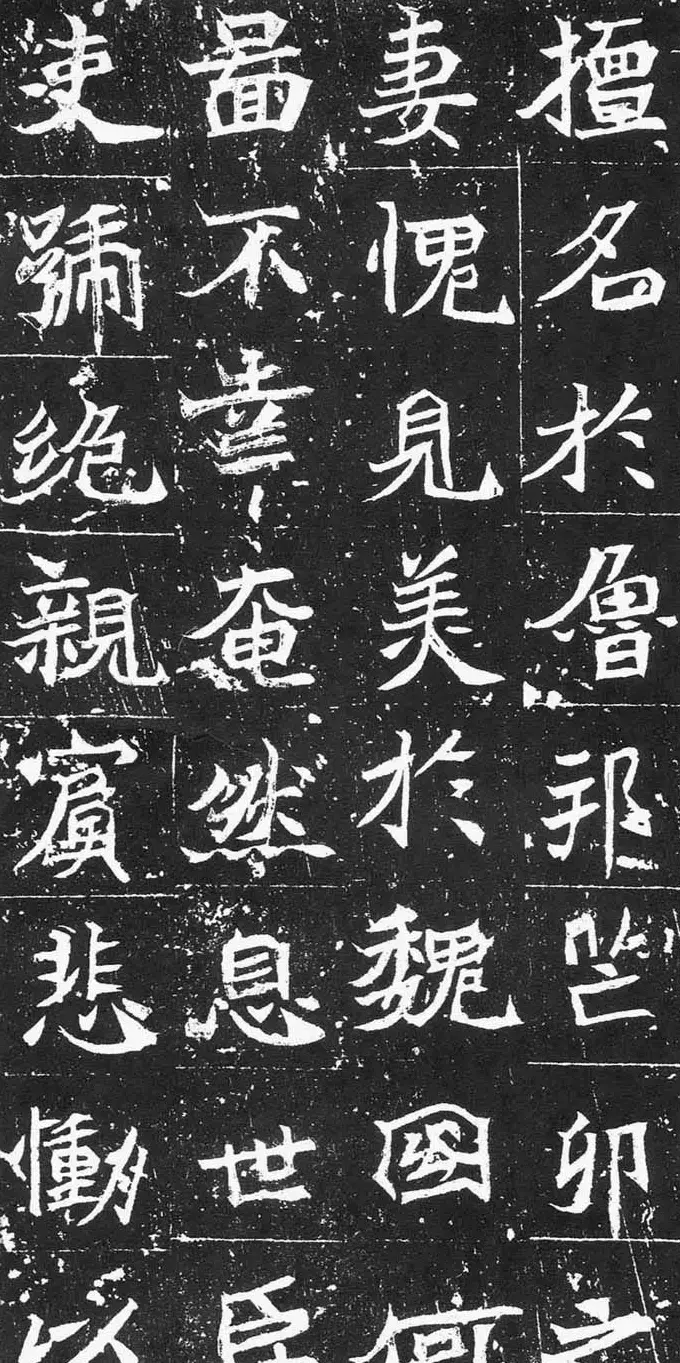 擅名於魯邦芒卯之
妻愧見美於魏國何
啚不幸奄然息世臣
吏號絶親賔悲慟以